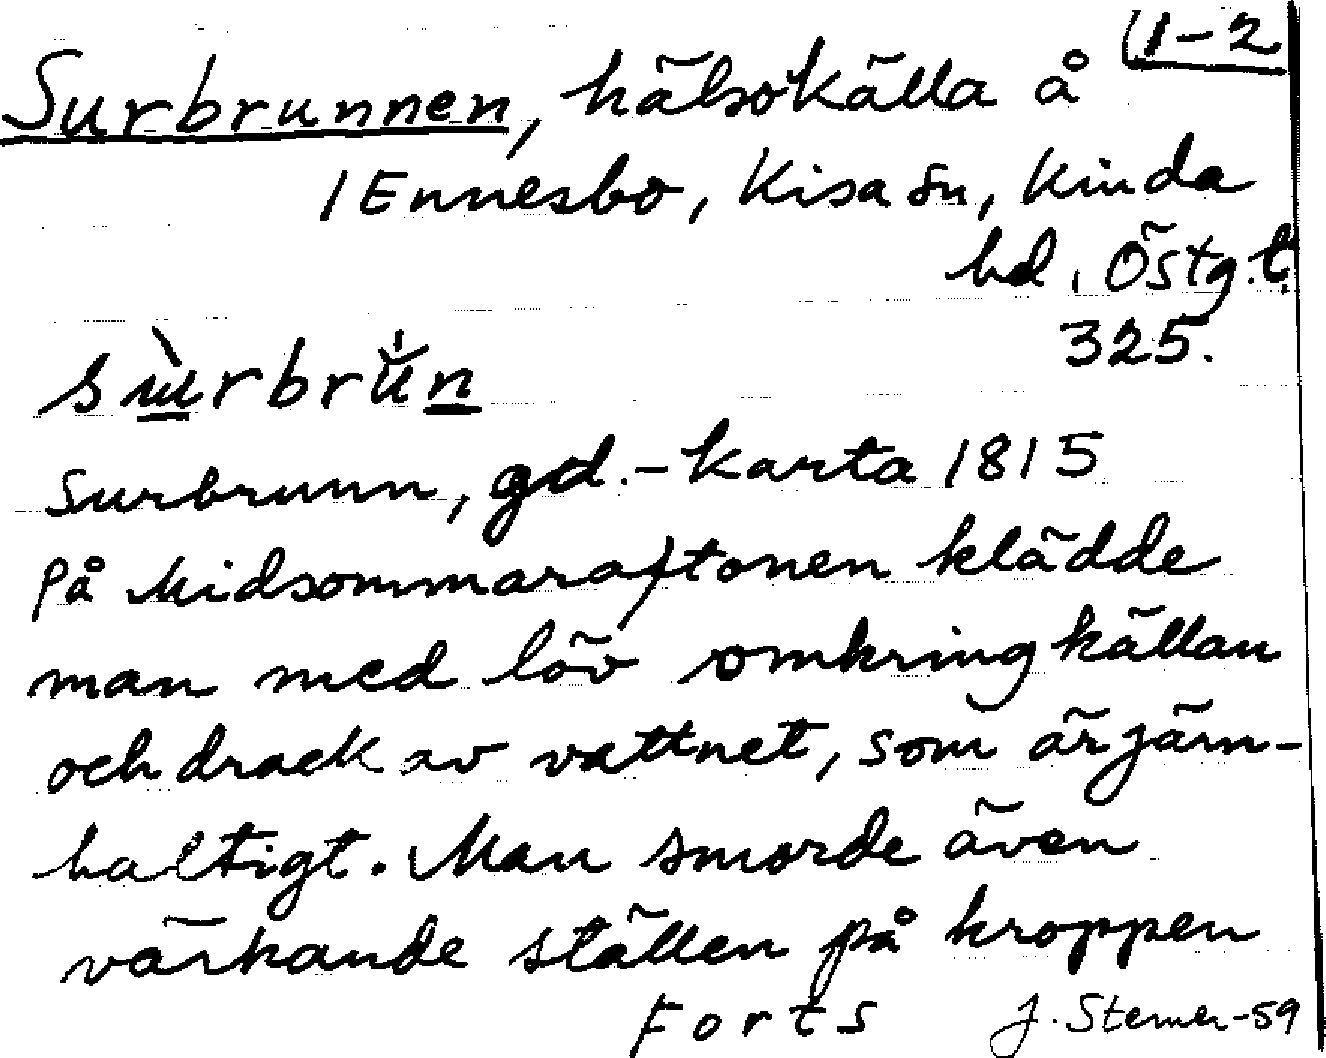 1-2
Surbrunnen, hälsokälla å
1 Ennesbo, Kisa sn, Kinda
hd, Östg.l.
325.
sùrbrun
Surbrunn, gd.-karta 1815
På Midsommaraftonen klädde
man med löv omkring källan
och drack av vattnet, som är järn-
haltigt. Man smorde även
värkande ställen på kroppen
Forts J. Sterner-59